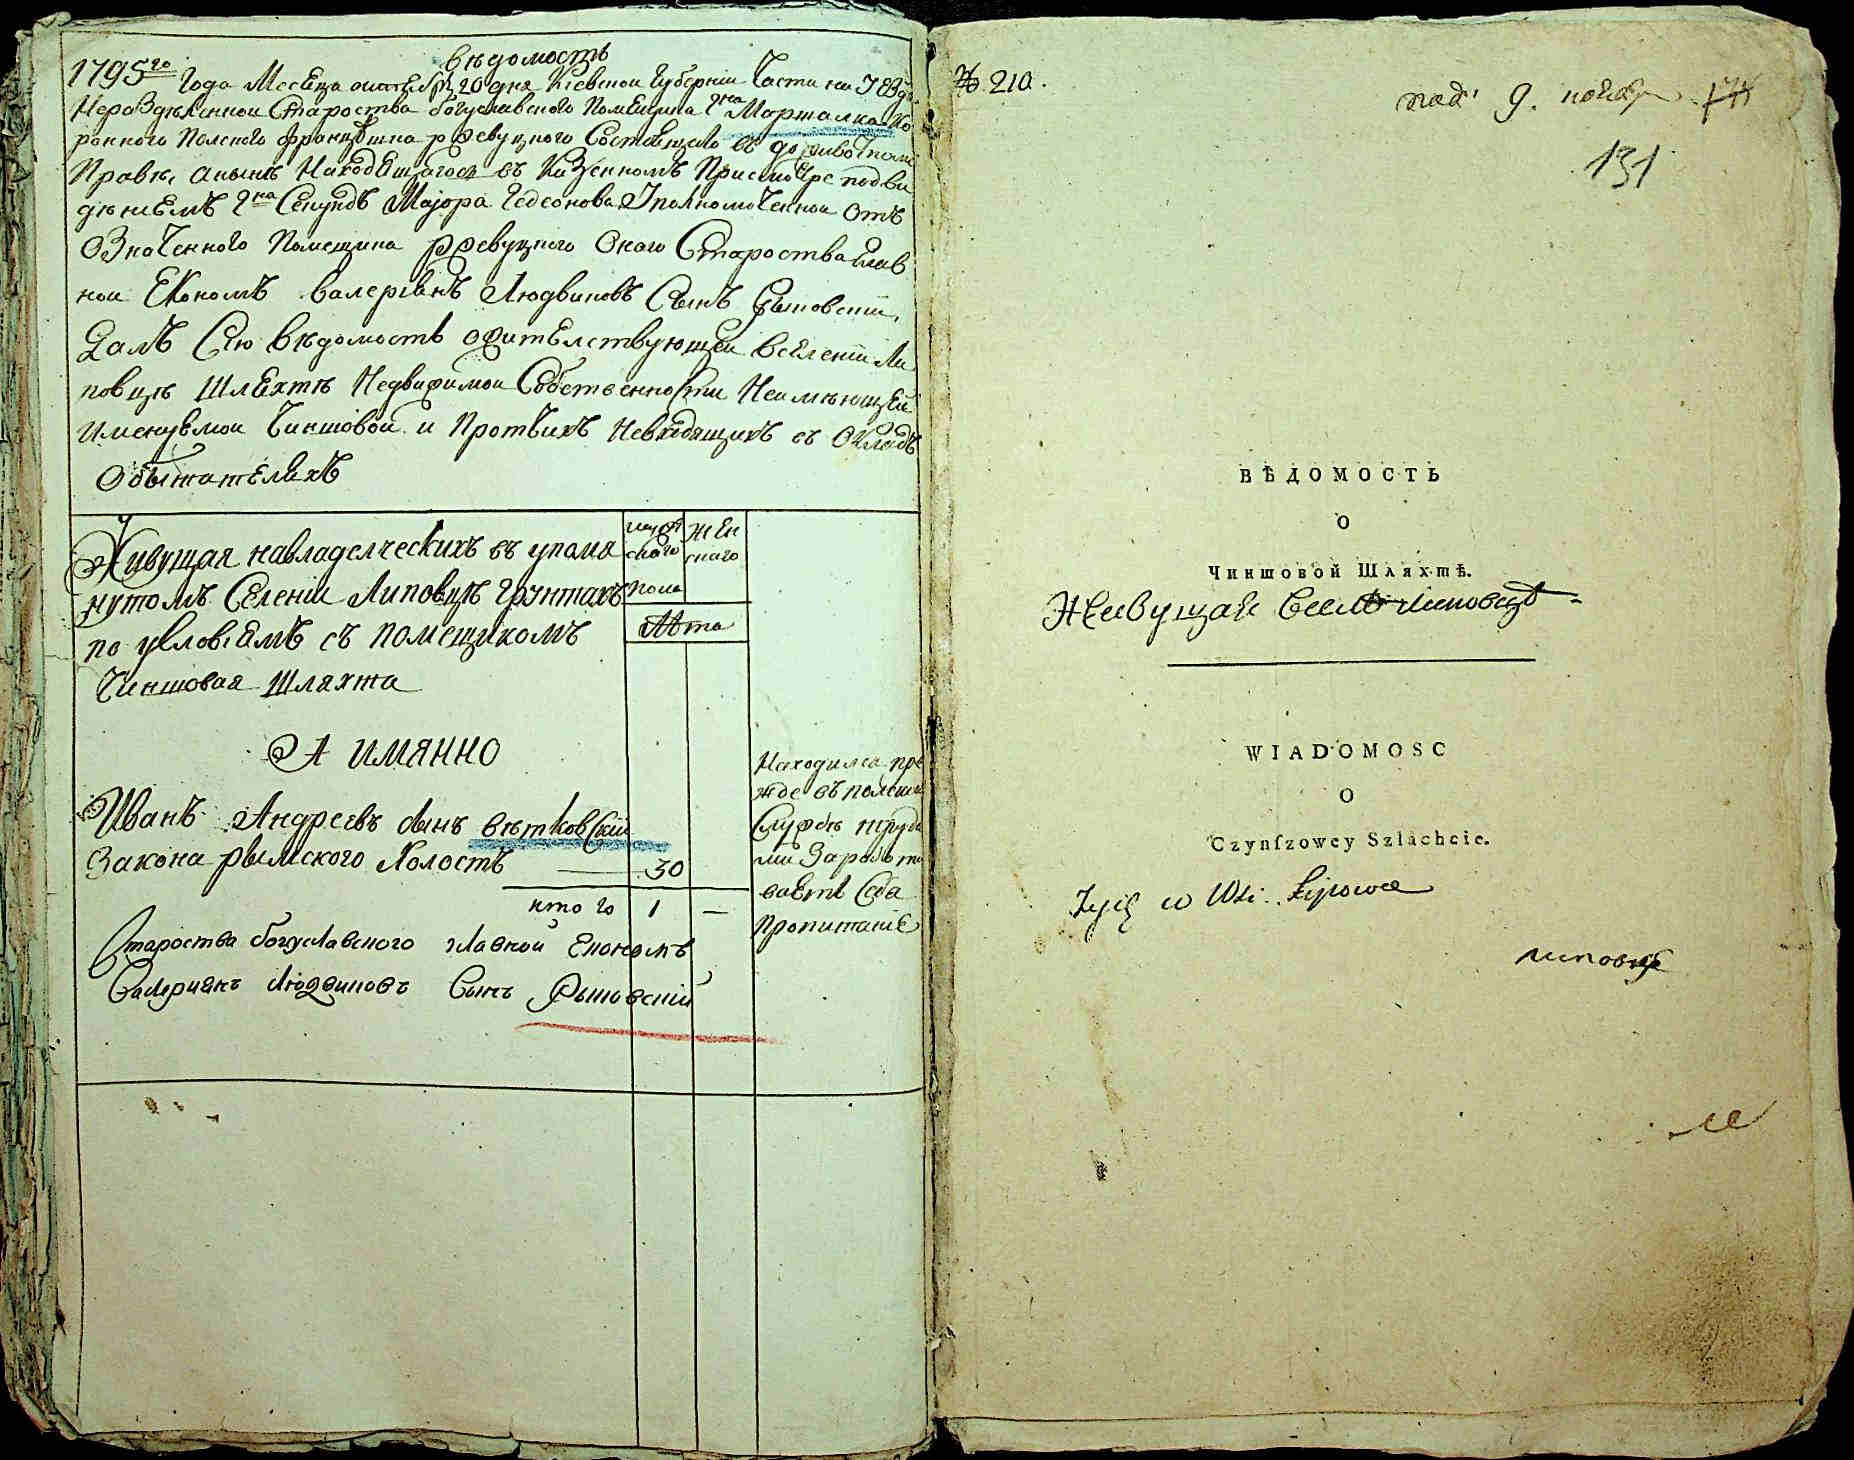 вѣдомость
1795го Года Месеца октебря 20 дня Киевской Губернии Части на Уезды
Нераздѣленной Староства богуславского Помещика гна Маршалка Ко
ронного Полского Францѣшка рževуцкого Состоящего въ доживотномъ
Правѣ, анынѣ Находящагося въ Казенномъ Присмотре подве
дѣниемъ гна Секундъ Маіора Гедеонова Уполномоченной Отъ
Означенного Помещика Ржевуцкого Оного Староства Глав
ной Економъ валеріянъ Людвиковъ Сынъ
Далъ Сію вѣдомость о жителствующей вселеніи Ли
повцѣ Шляхтѣ Недвижимой Собственности Неимѣющей
Именуемой Чиншовой и Протчихъ Невходящихъ въ Окладъ
Обывателяхъ
Живущая навладелческихъ въ упомя
нутомъ Селеніи Липовцѣ Грунтахъ
по условіямъ съ помещикомъ
Чиншовая Шляхта
муже
ского
жен
ского
пола
Лѣта
А имянно
Иванъ Андреевъ сынъ вѣтковскій
Закона рымского Холостъ 30
итого 1 —
Находился пре
жде въ полской
Службѣ труда
ми Заработы
ваетъ Себѣ
Пропитаніе
Староства богуславского главной Економъ
Валериянъ Людвиковъ Сынъ
№ 210.
под. 9. ноября
131
ВѢДОМОСТЬ
О
Чиншовой Шляхтѣ.
Живущая вселѣ Липовцѣ
WIADOMOSC
O
Czynſzowey Szlachcie.
Zyię w Wsi Lipowce
Липовцѣ